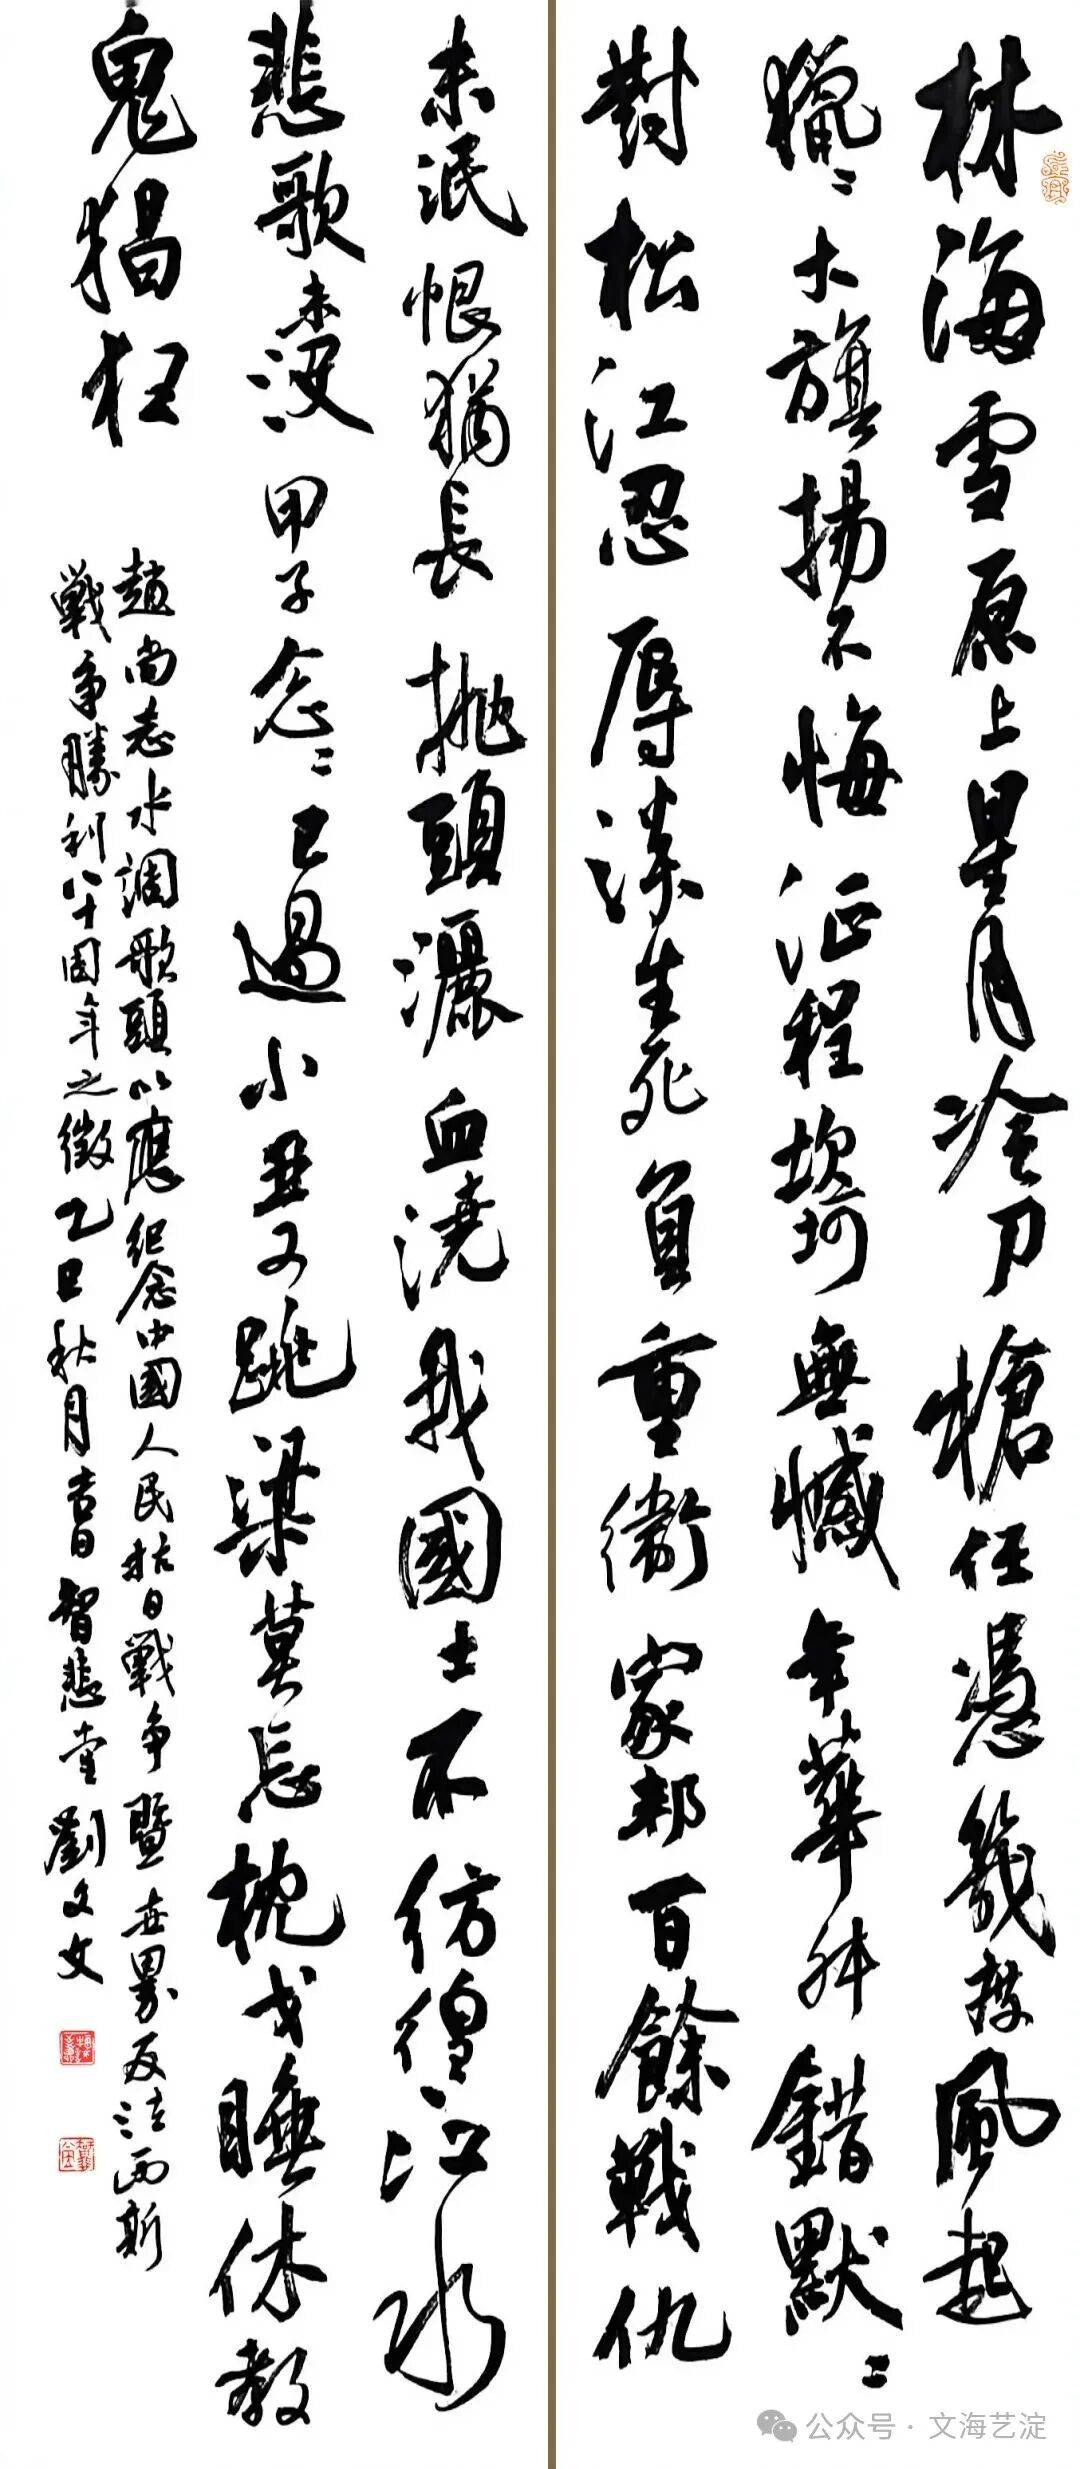 林海雪原上星月冷刀槍任憑幾度風起
獵獵大旗揚不悔征程坎坷無憾年華舛錯默默
對松江忍辱淡生死負重衛家邦百餘戰仇
未泯恨猶長拋頭灑血澆我國土不彷徨江水
悲歌未沒甲子念念已過小丑又跳梁莫忘枕戈睡休教
鬼猖狂
趙尚志水調歌頭以應紀念中國人民抗日戰爭暨世界反法西斯
戰爭勝利八十周年之徵乙巳秋月吉日智悲堂劉文文
公众号·文海艺淀